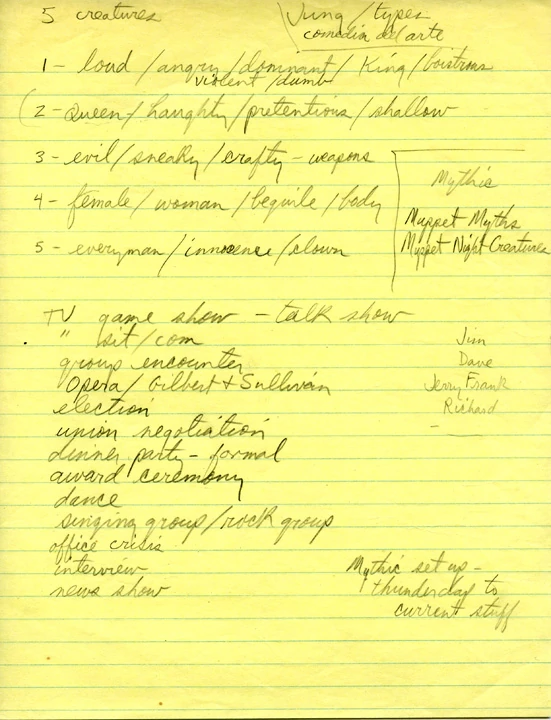 5 creatures
Jung / types
comedia del arte
1 - loud / angry / dominant / King / boistrous
violent / dumb
2 - Queen / haughty / pretentious / shallow
3 - evil / sneaky / crafty - weapons
4 - female / woman / beguile / body
5 - everyman / innocence / clown
Mythic
Muppet Myths
Muppet Night Creatures
TV game show - talk show
" sit/com
group encounter
Opera / Gilbert & Sullivan
election
union negotiation
dinner party - formal
award ceremony
dance
singing group / rock group
office crisis
interview
news show
Jim
Dave
Jerry Frank
Richard
-
Mythic set up -
to
current stuff